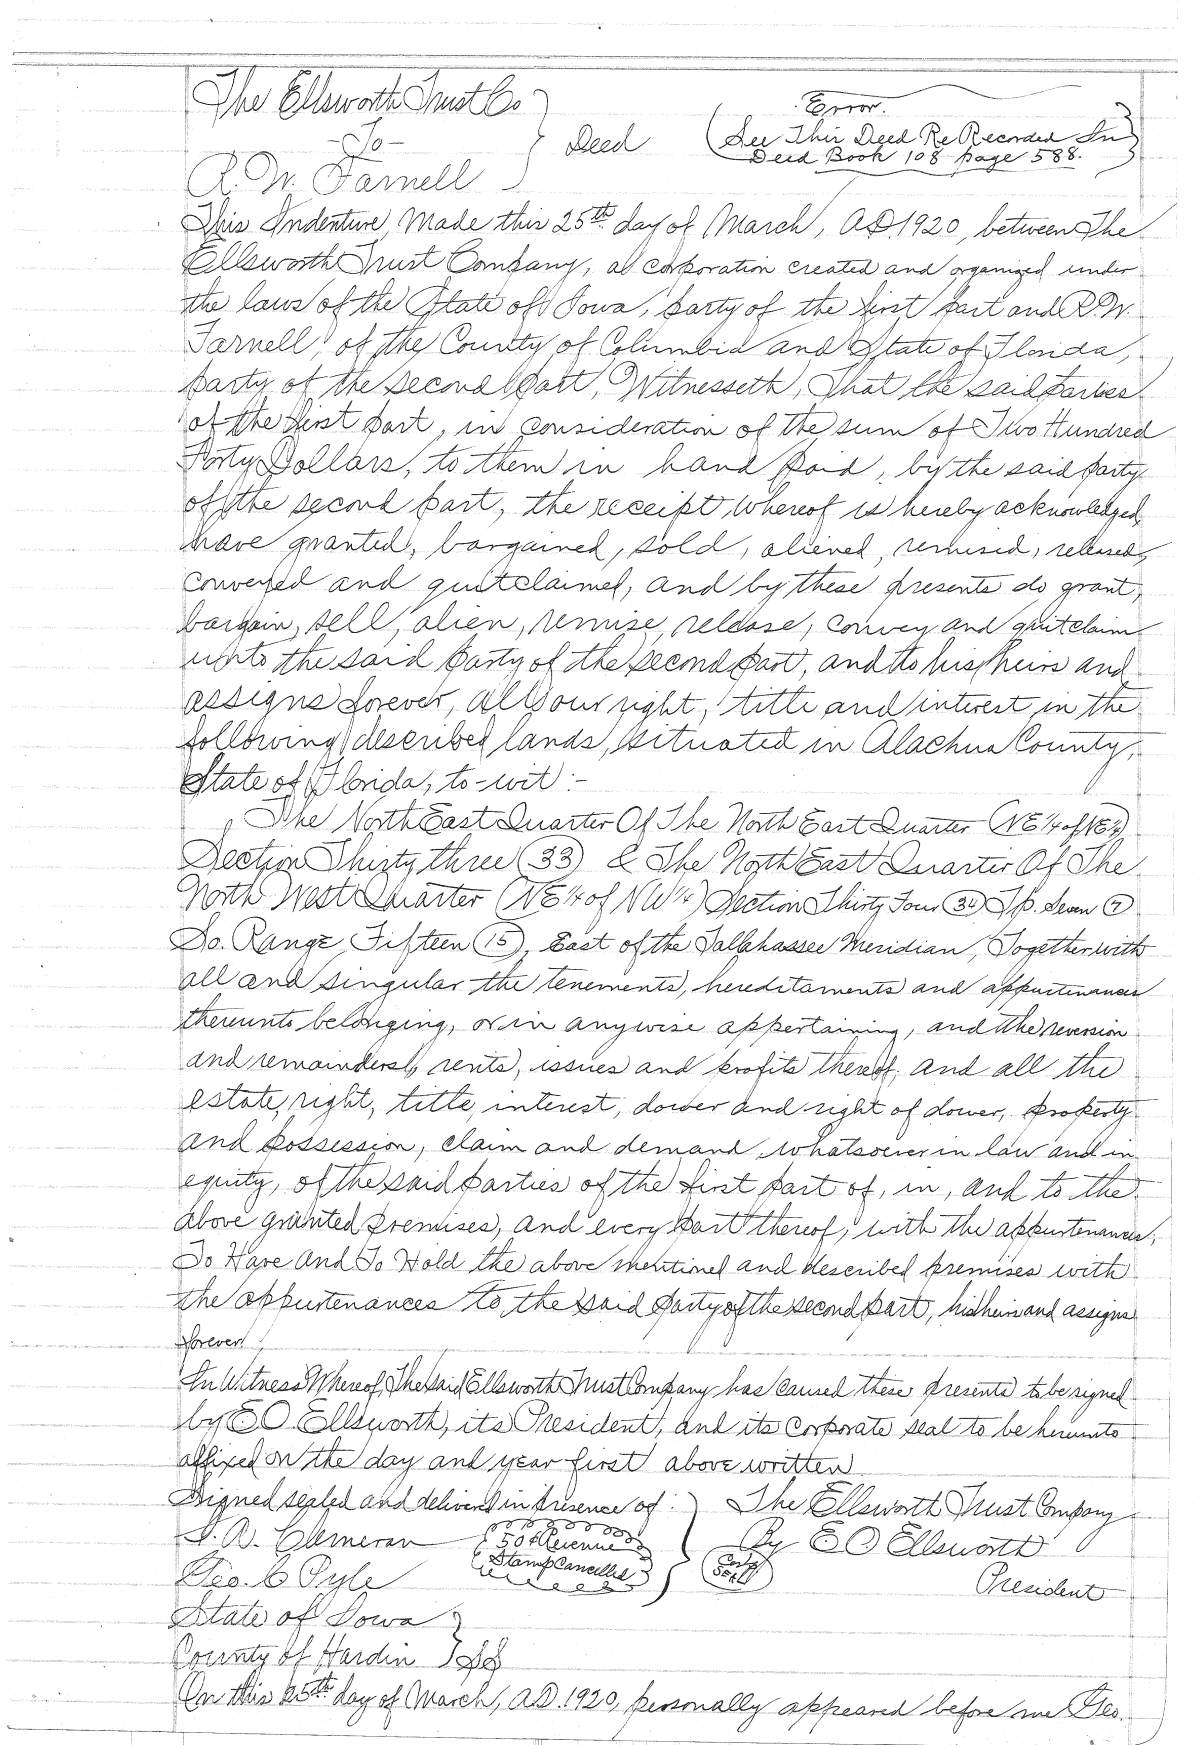 The Ellsworth Trust Co
-To-
R. W. Farnell
Deed
Error.
See This Deed Re Recorded In
Deed Book 108 page 588.
This Indenture, Made this 25th day of March, A.D. 1920, between The
Ellsworth Trust Company, a corporation created and organized under
the laws of the State of Iowa, party of the first part and R.W.
Farnell, of the County of Columbia and State of Florida,
party of the second part, Witnesseth, That the said parties
of the first part, in consideration of the sum of Two Hundred
Forty Dollars, to them in hand paid, by the said party
of the second part, the receipt whereof is hereby acknowledged,
have granted, bargained, sold, aliened, remised, released,
conveyed and quitclaimed, and by these presents do grant,
bargain, sell, alien, remise, release, convey and quitclaim
unto the said party of the second part, and to his heirs and
assigns forever, all our right, title and interest in the
following described lands, situated in Alachua County,
State of Florida, to-wit:-
The North East Quarter Of The North East Quarter (NE¼ of NE¼)
Section Thirty three (33) & The North East Quarter Of The
North West Quarter (NE¼ of NW¼) Section Thirty Four (34) Tp. Seven (7)
So. Range Fifteen (15), East of the Tallahassee Meridian, Together with
all and singular the tenements, hereditaments and appurtenances
thereunto belonging, or in anywise appertaining, and the reversion
and remainders, rents, issues and profits thereof, and all the
estate, right, title, interest, dower and right of dower, property
and possession, claim and demand, whatsoever in law and in
equity, of the said parties of the first part of, in, and to the
above granted premises, and every part thereof, with the appurtenances,
To Have And To Hold the above mentioned and described premises with
the appurtenances to the said party of the second part, his heirs and assigns
forever.
In Witness Whereof, The Said Ellsworth Trust Company has caused these presents to be signed
by E O Ellsworth, its President, and its corporate seal to be hereunto
affixed on the day and year first above written
Signed sealed and delivered in presence of:
The Ellsworth Trust Company
Cameron
50¢ Revenue
By E O Ellsworth
Geo. C Pyle
Stamp Cancelled
Corp Seal
President
State of Iowa
County of Hardin SS
On this 25th day of March, A.D. 1920, personally appeared before me Geo.